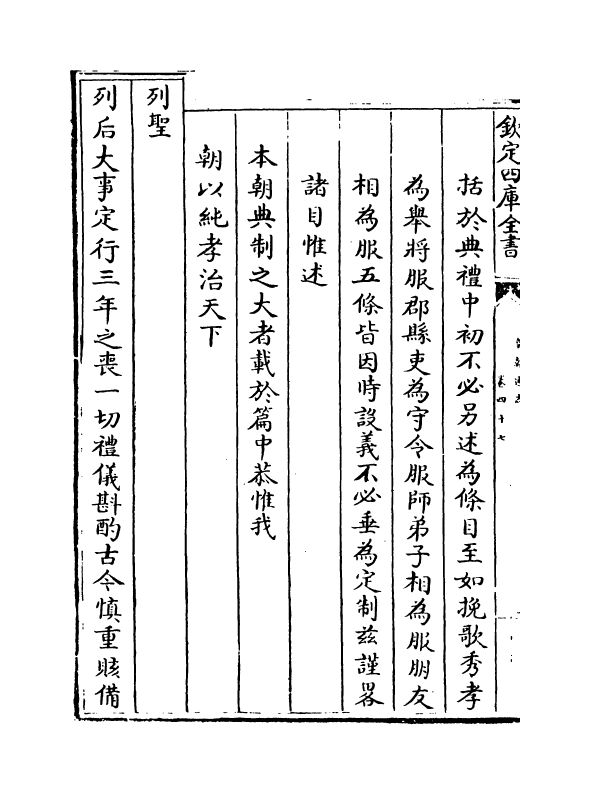 欽定四庫全書
卷四十七
括於典禮中初不必另述為條目至如挽歌秀孝
為舉將服郡縣吏為守令服師弟子相為服朋友
相為服五條皆因時設義不必垂為定制茲謹畧
諸目惟述
本朝典制之大者載於篇中恭惟我
朝以純孝治天下
列聖
列后大事定行三年之喪一切禮儀斟酌古今慎重賅備